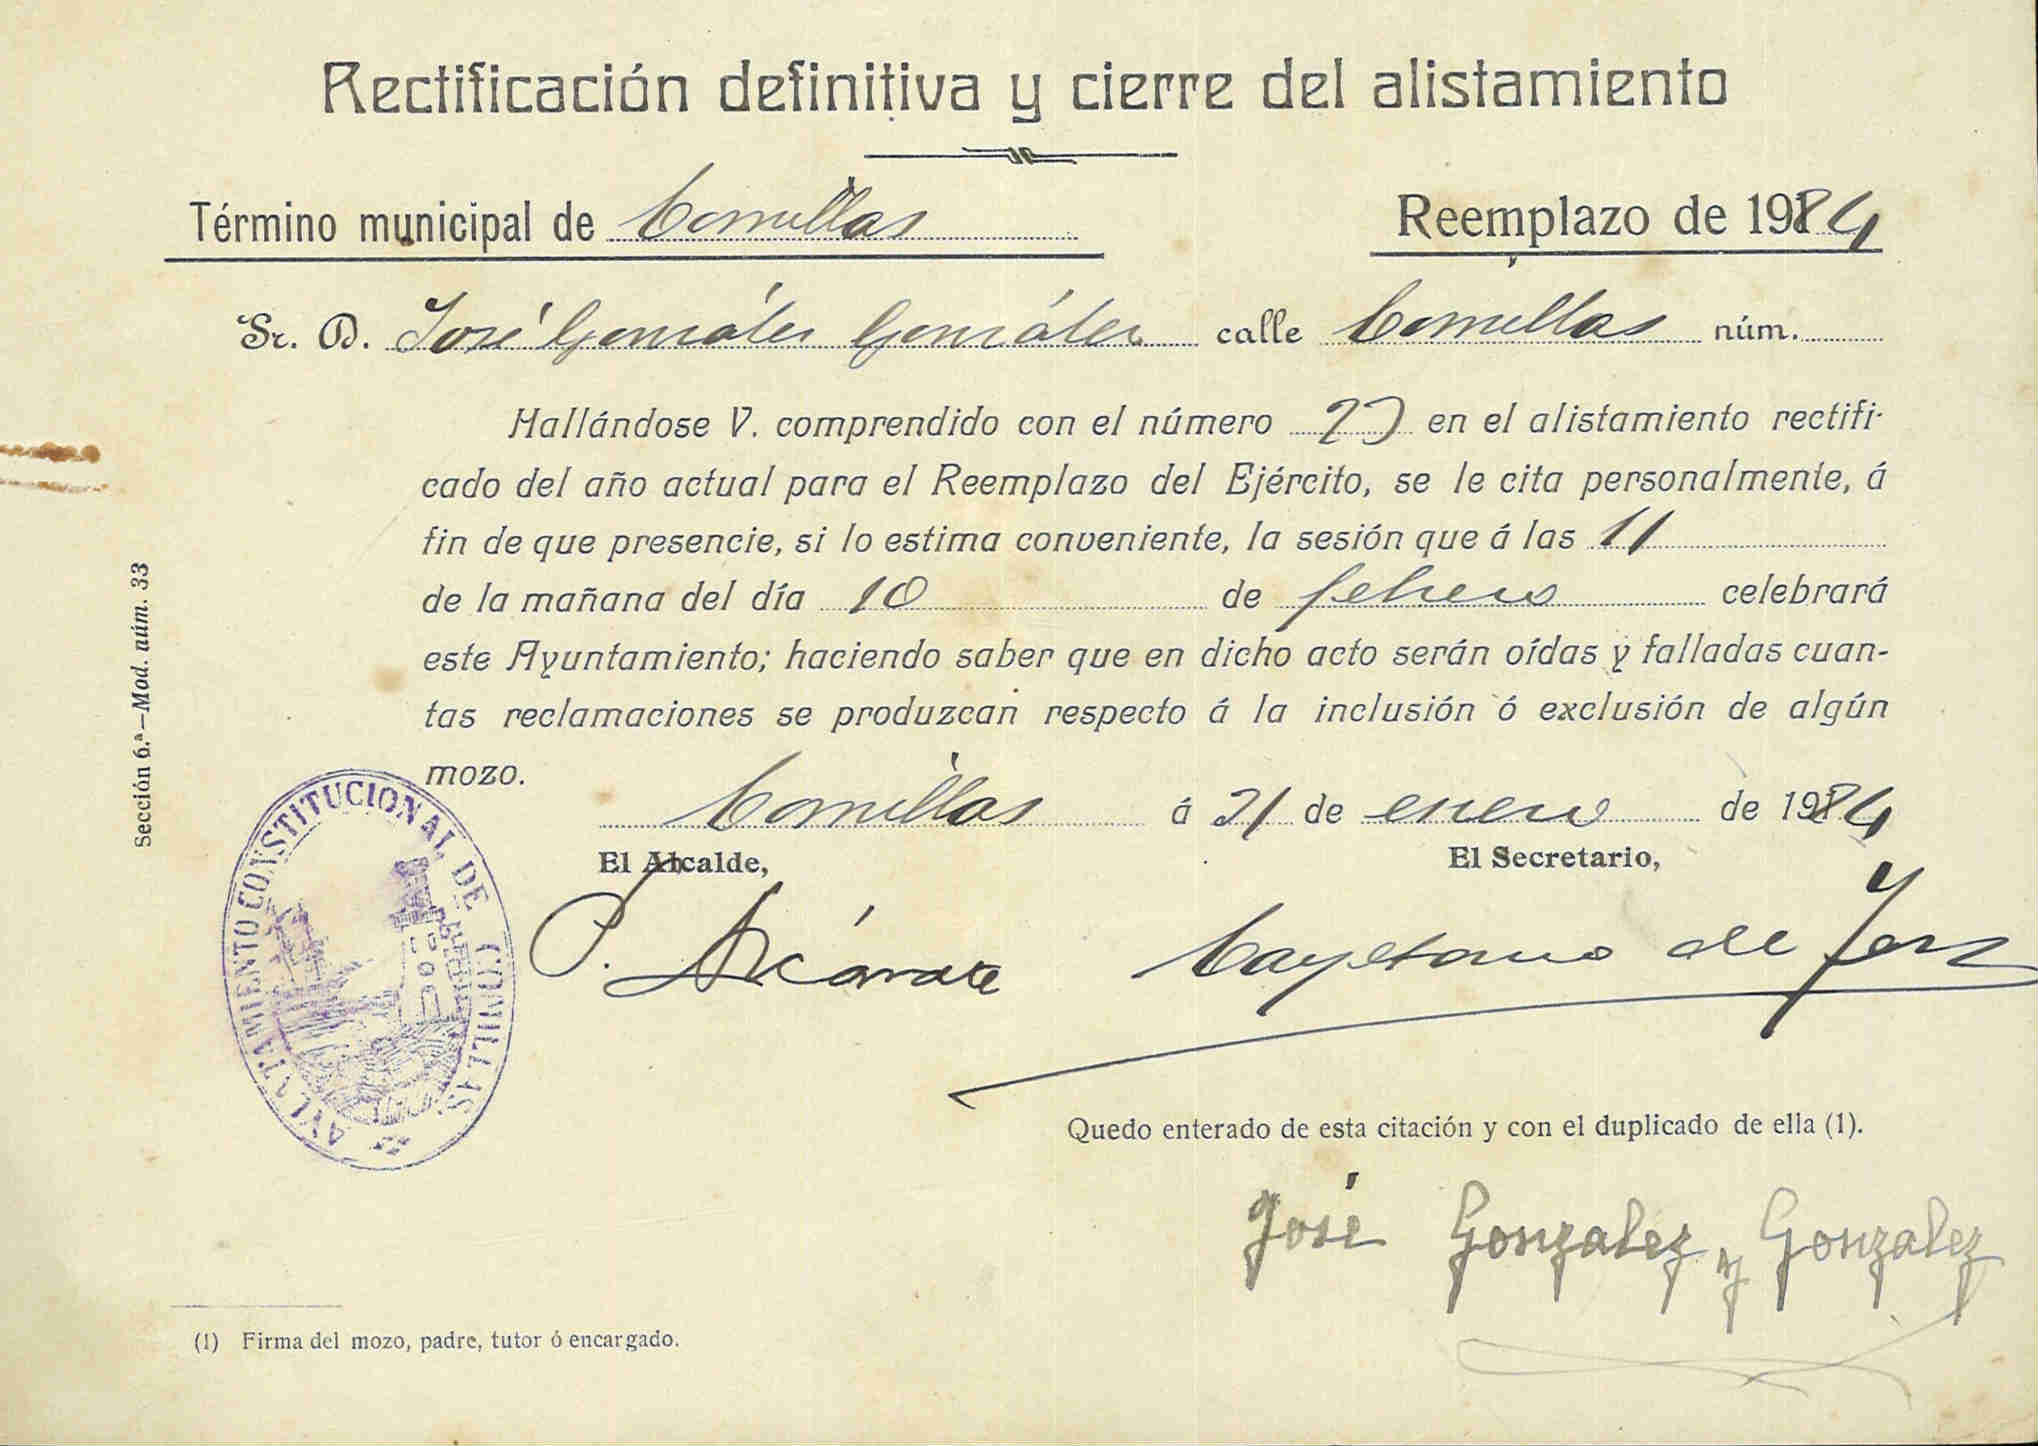 Rectificación definitiva y cierre del alistamiento
Término municipal de Comillas Reemplazo de 1924
Sr. D. José González González calle Comillas núm.
Hallándose V. comprendido con el número en el alistamiento rectifi-
cado del año actual para el Reemplazo del Ejército, se le cita personalmente, á
fin de que presencie, si lo estima conveniente, la sesión que á las 11
de la mañana del día 10 de febrero celebrará
este Ayuntamiento; haciendo saber que en dicho acto serán oídas y falladas cuan-
tas reclamaciones se produzcan respecto á la inclusión ó exclusión de algún
mozo.
Comillas á 31 de enero de 1924
El Alcalde, El Secretario,
P. Cayetano de
AYUNTAMIENTO CONSTITUCIONAL DE COMILLAS
Quedo enterado de esta citación y con el duplicado de ella (1).
José Gonzalez y Gonzalez
(1) Firma del mozo, padre, tutor ó encargado.
Sección 6.ª—Mod. núm. 33